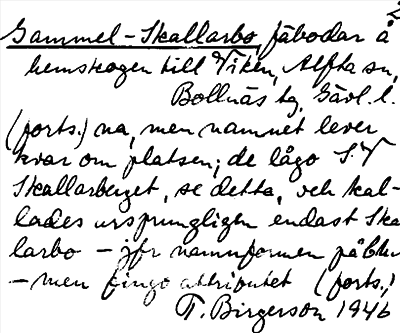 2
Gammel-Skallarbo, fäbodar å
hemskogen till Viken, Alfta sn,
Bollnäs tg, Gävl. l.
(forts.) na, men namnet lever
kvar om platsen; de lågo S. V
Skallarberget, se detta, och kal-
lades ursprungligen endast Ska
larbo - jfr namnformen på bl
- men fingo attributet (forts.)
T. Birgerson 1946